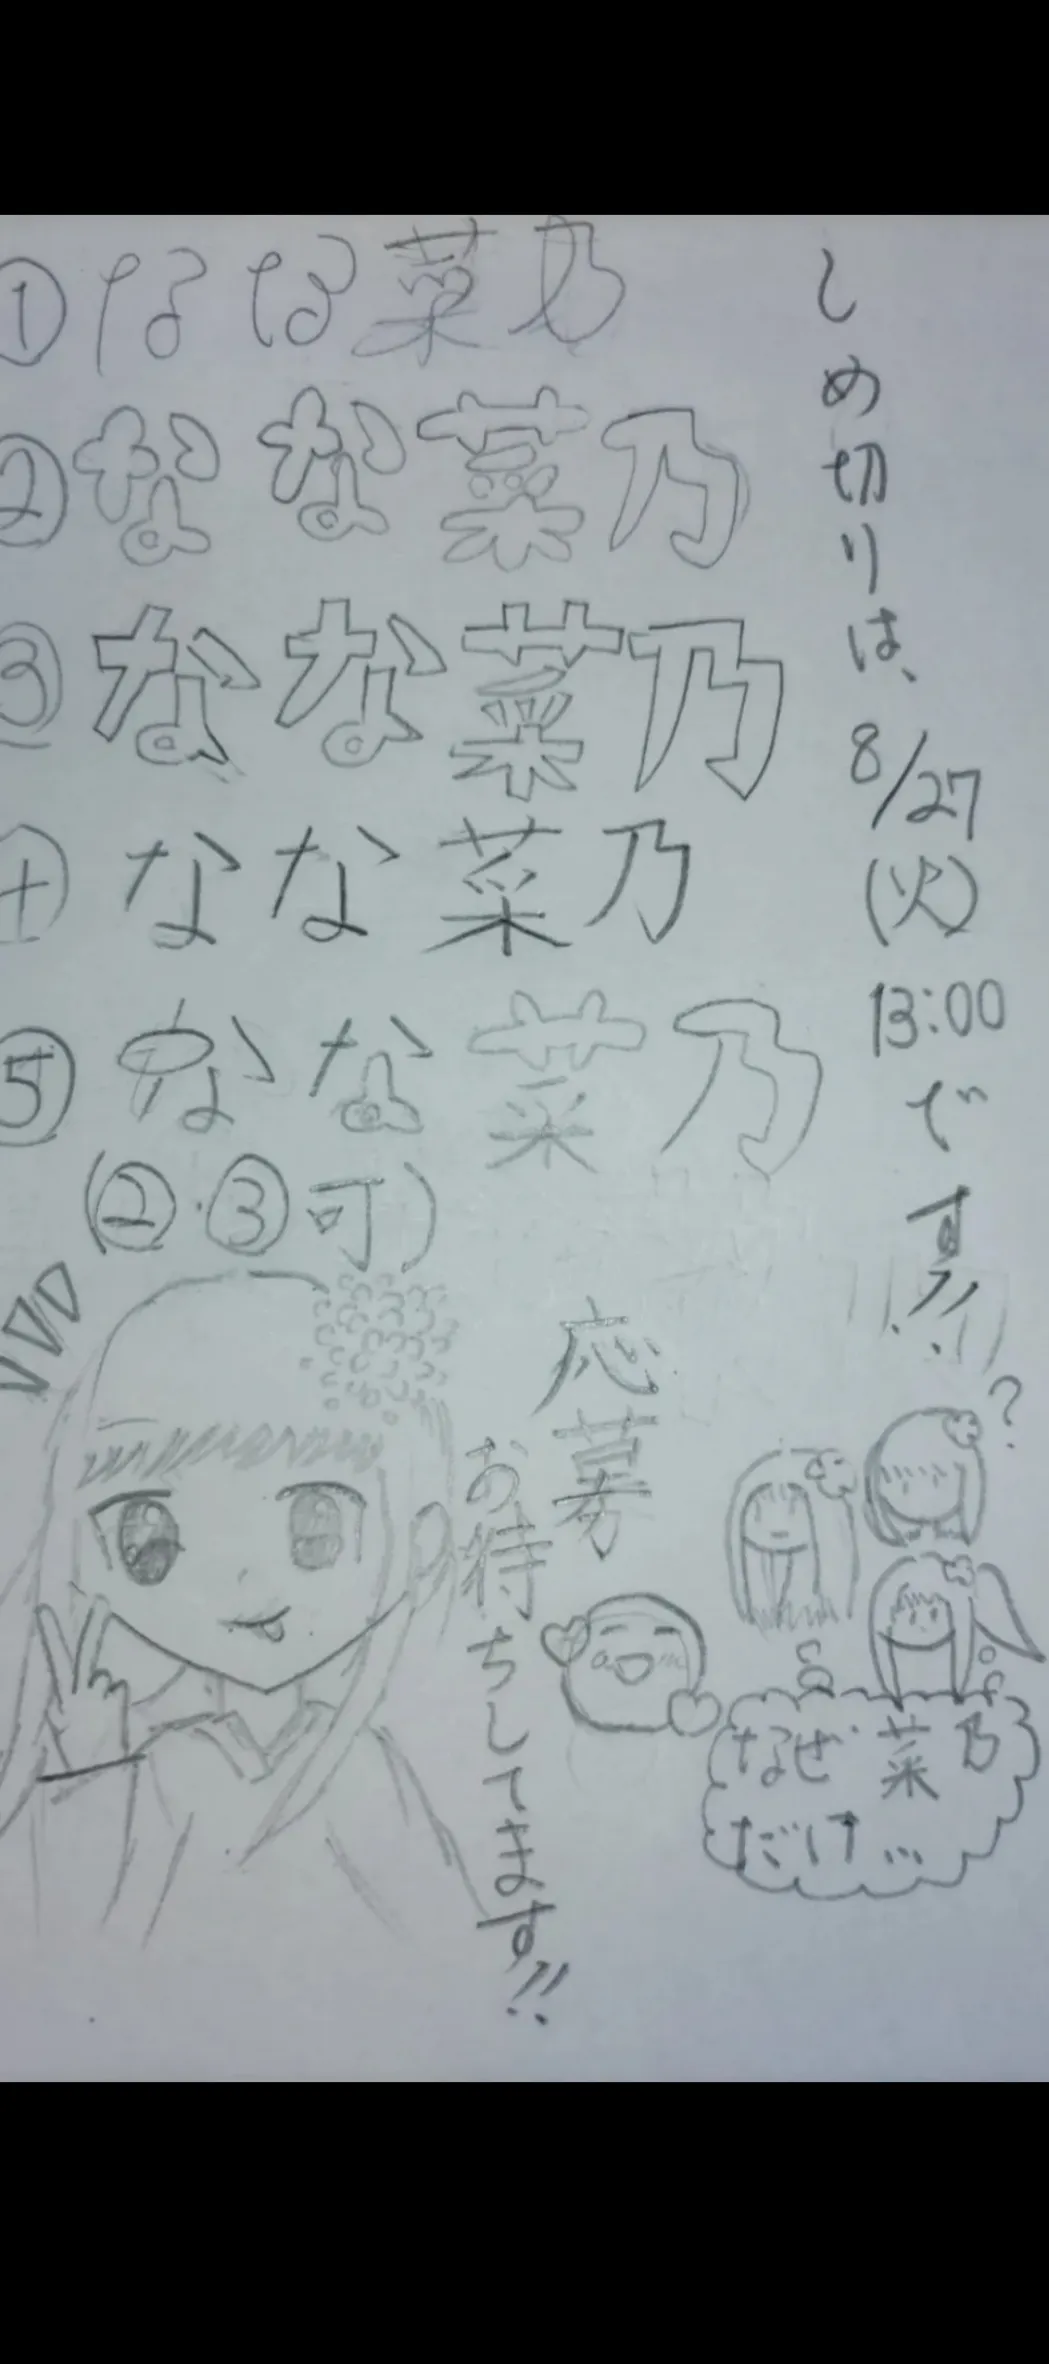 ① なな菜乃
② なな菜乃
③ なな菜乃
④ なな菜乃
⑤ なな菜乃
(②・③可)
しめ切りは、8/27(火)13:00です!!
応募
お待ちしてます!!
?
なぜ菜乃
だけ...